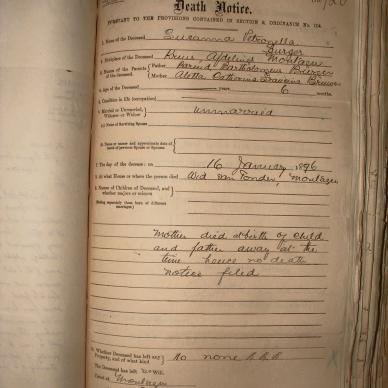 Death Notice.
PURSUANT TO THE PROVISIONS CONTAINED IN SECTION 9, ORDINANCE No. 104.
1. Name of the Deceased Susanna Petronella
Burger
2. Birthplace of the Deceased Montagu
3. Names of the Parents of the deceased. Father Barend Bartholomeus Burger
Mother Aletta Catharina
4. Age of the Deceased years 6 months.
5. Condition in life (occupation)
6. Married or Unmarried, Widower or Widow unmarried
(a) Name of Surviving Spouse
(b) Name or names and approximate date of death of previous Spouse or Spouses
7. The day of the decease: on 16 January 1896
8. At what House or where the person died Montagu
9. Names of Children of Deceased, and whether majors or minors
(Stating separately those born of different marriages.)
Mother died at birth of child
and father away at the
time hence no death
notice filed
10. Whether Deceased has left any Property, and of what kind No none
The Deceased has left no Will.
Dated at Montagu